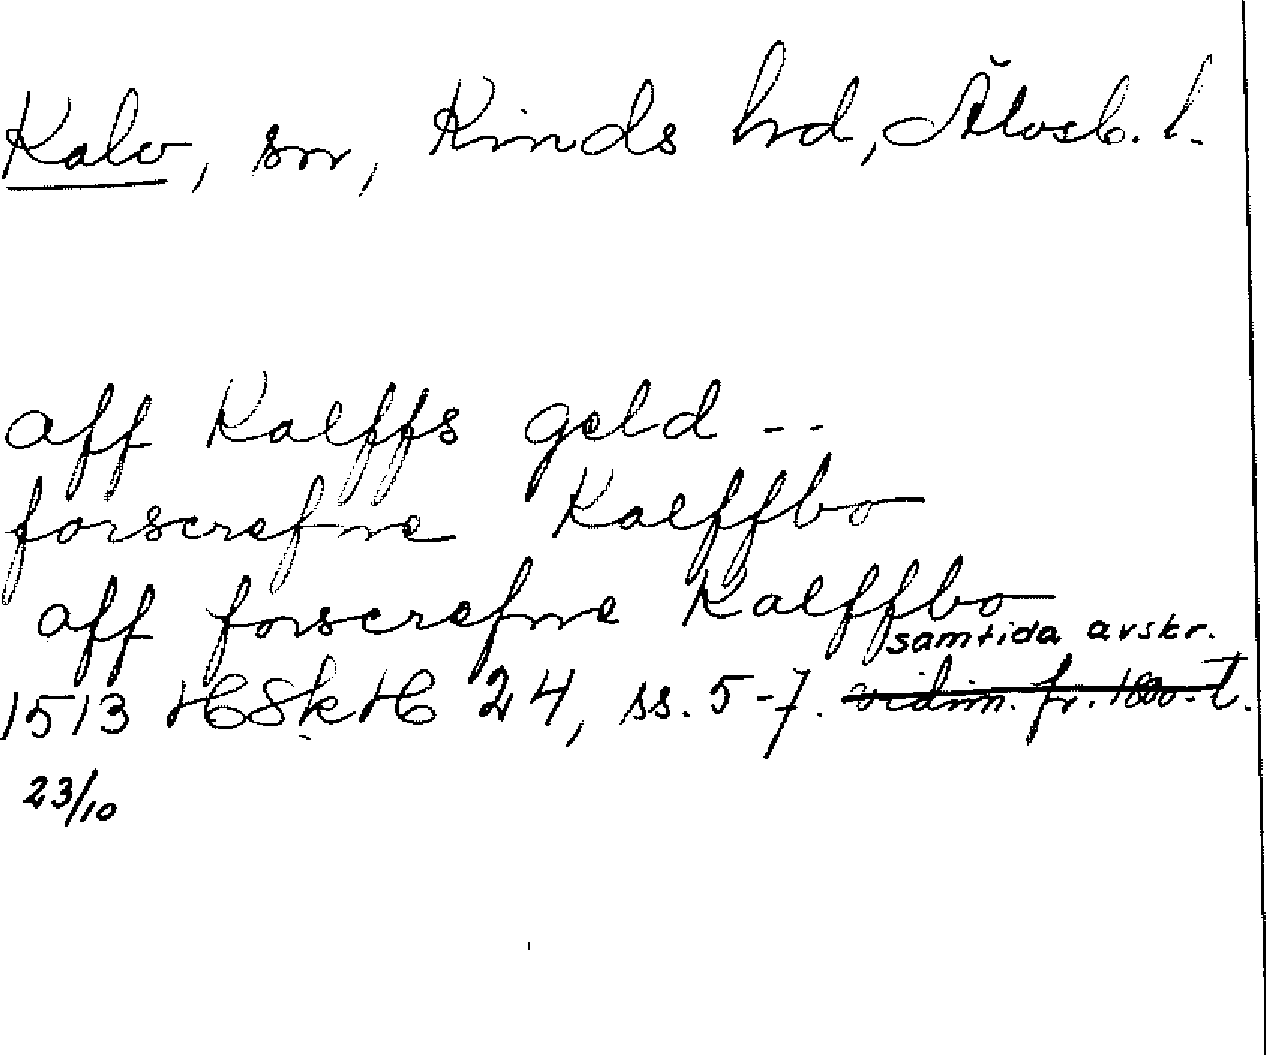 Kalv, sn, Kinds hd, Älvsb. l.
aff Kalffs geld --
forscrefne Kalffbo
aff forscrefne Kalffbo
samtida avskr.
1513 HSkH 24, ss. 5-7. vidim. fr. 1800-t.
23/10